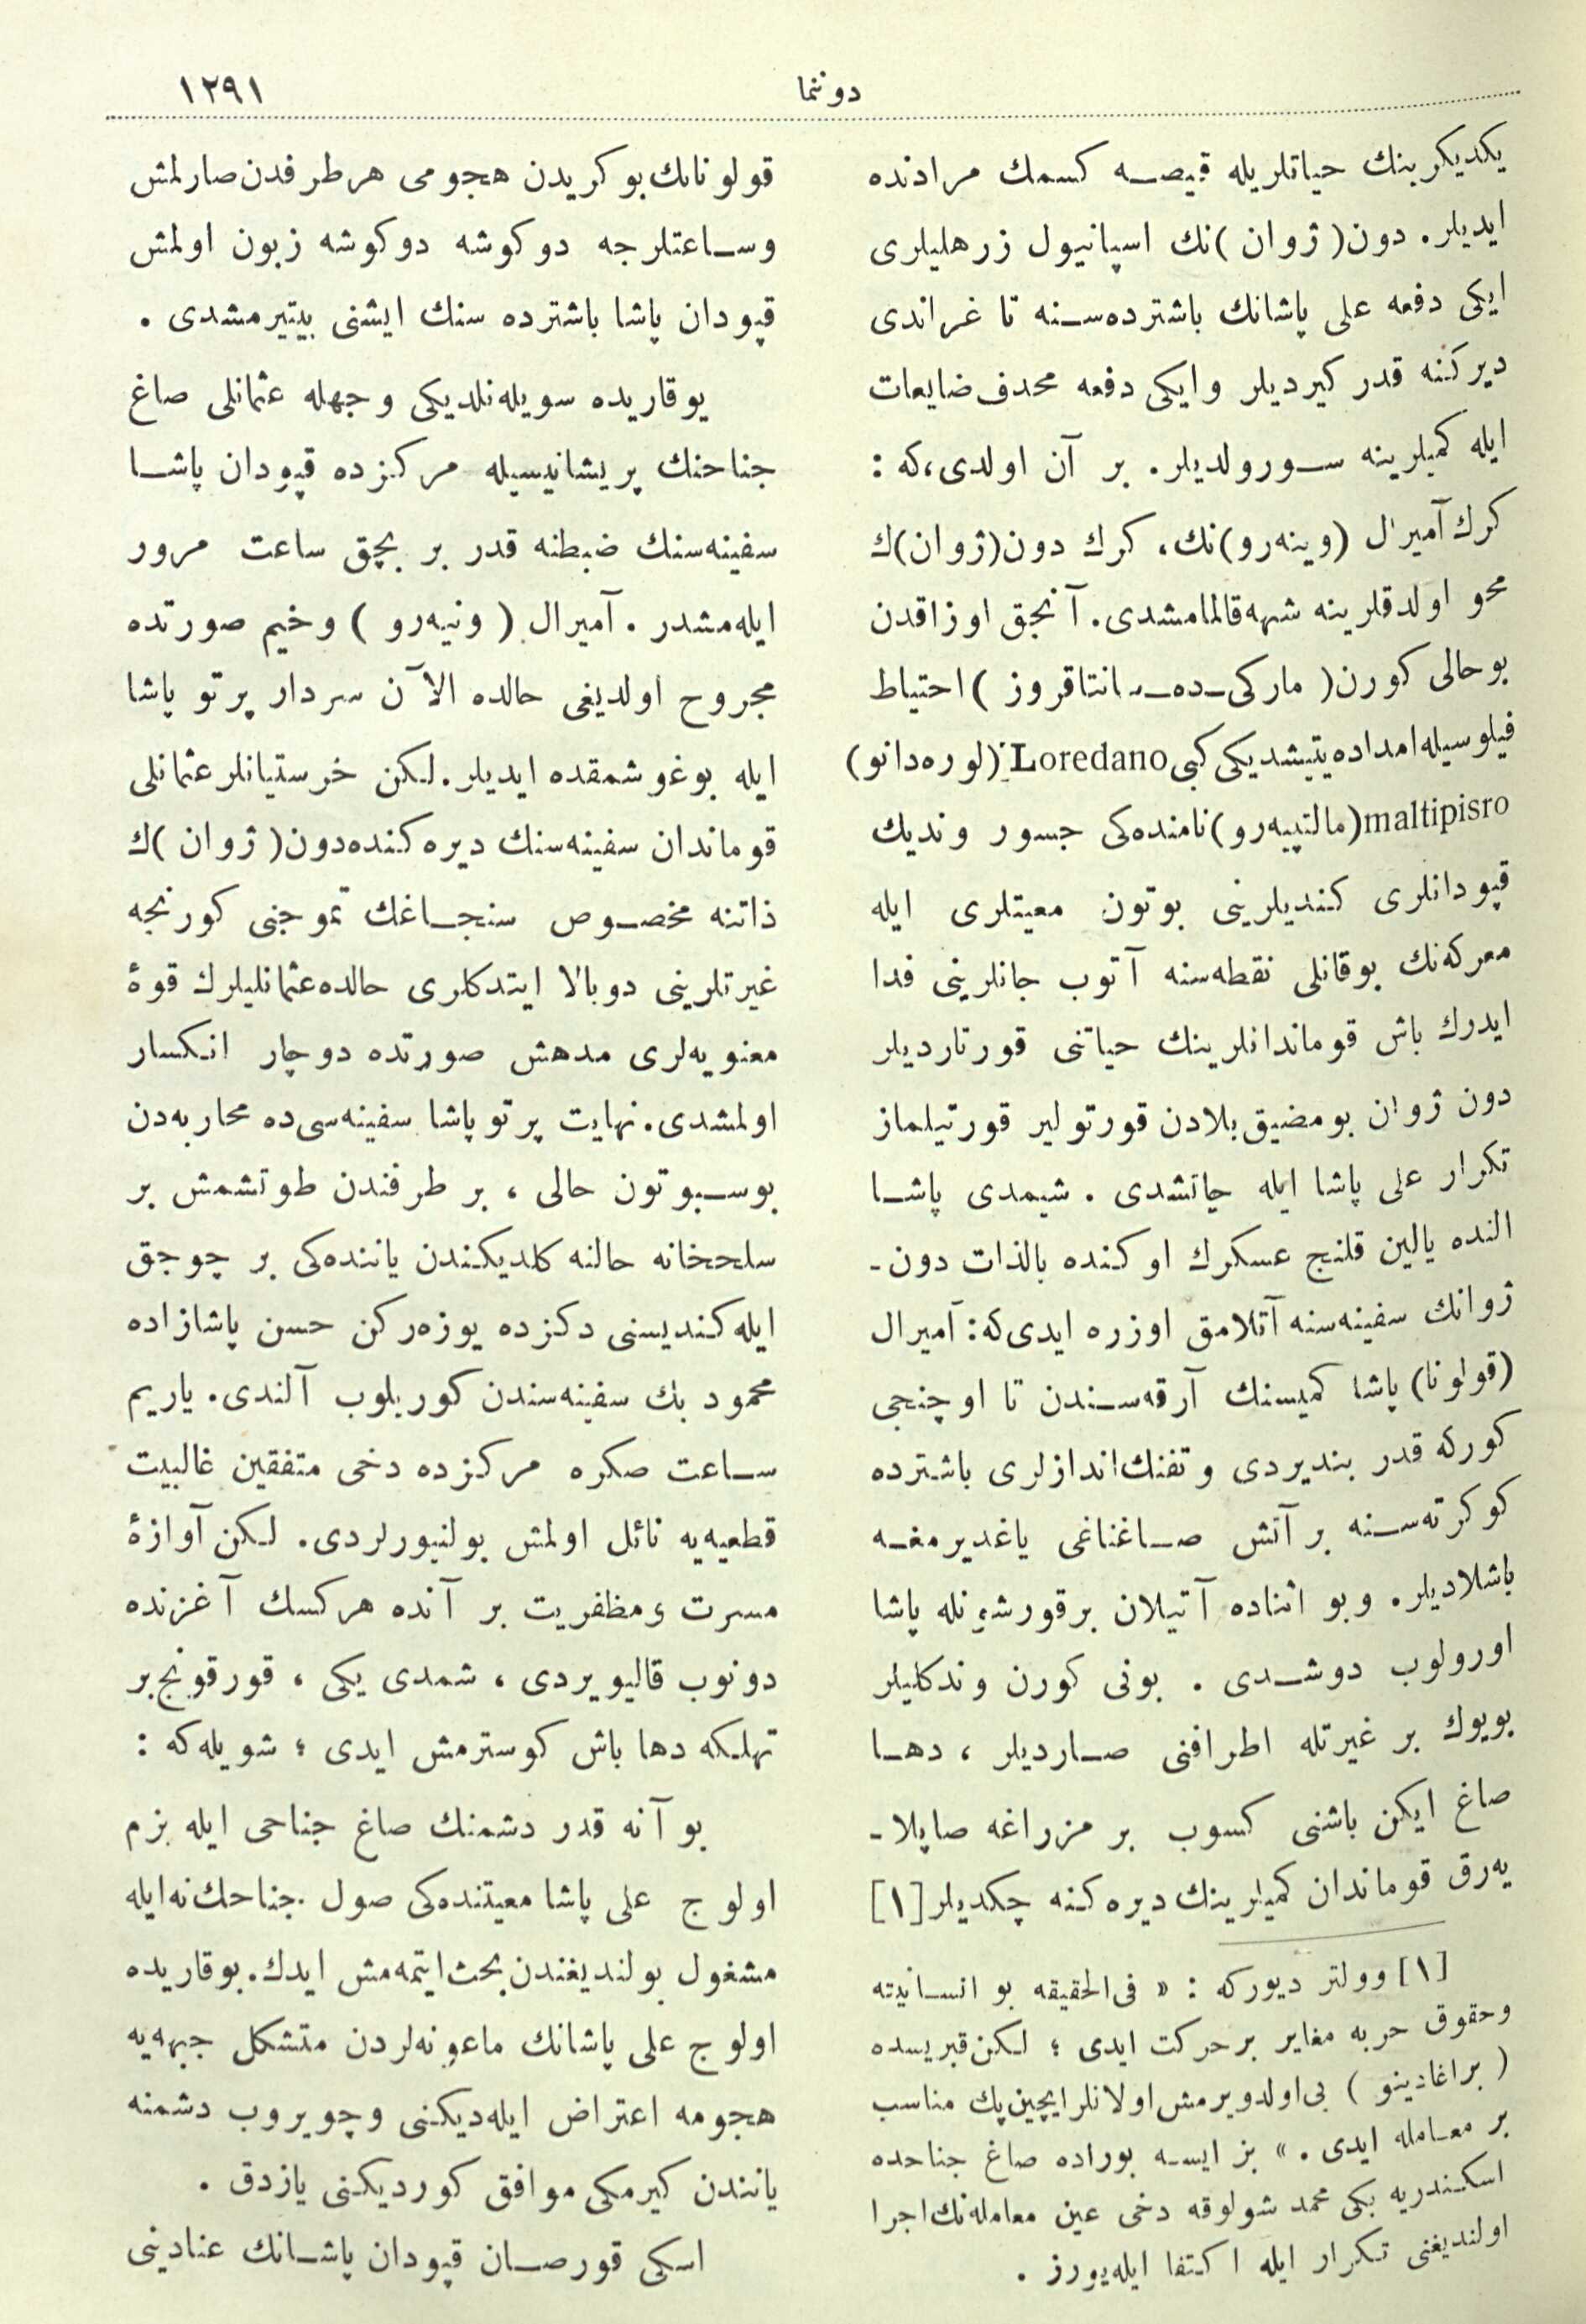 دوننما
١٢٩١
يكديكرينك حياتلريله قيصه كسمك مرادنده
ايديلر. دون(ژوان)نك اسپانيول زرهليلرى
ايكى دفعه على پاشانك باشترده‌سنه تا غراندى
ديركنه قدر كيرديلر وايكى دفعه محدف ضايعات
ايله كميلرينه سورولديلر. بر آن اولدى،كه :
كرك آميرال (وينه‌رو)نك، كرك دون(ژوان)ك
محو اولدقلرينه شبهه‌قالمامشدى. آنجق اوزاقدن
بوحالى كورن( ماركى-ده-سانتاقروز )احتياط
فيلوسيله‌امداده‌يتيشديكى‌كبى Loredano (لوره‌دانو)
maltipisro(مالتيپيه‌رو)نامنده‌كى جسور ونديك
قپودانلرى كنديلرينى بوتون معيتلرى ايله
معركه‌نك بوقانلى نقطه‌سنه آتوب جانلرينى فدا
ايدرك باش قوماندانلرينك حياتنى قورتارديلر
دون ژوان بومضيق‌بلادن قورتولير قورتيلماز
تكرار على پاشا ايله چاتشدى . شيمدى پاشا
النده يالين قلنج عسكرك اوكنده بالذات دون-
ژوانك سفينه‌سنه آتلامق اوزره ايدى‌كه: آميرال
(قولونا) پاشا كميسنك آرقه‌سندن تا اوچنجى
كوركه قدر بنديردى وتفنك‌اندازلرى باشترده
كوكرته‌سنه بر آتش صاغناغى ياغديرمغه
باشلاديلر. وبو اثناده آتيلان برقورشونله پاشا
اورولوب دوشدى . بونى كورن وندكليلر
بويوك بر غيرتله اطرافنى صارديلر ، دها
صاغ ايكن باشنى كسوب بر مزراغه صاپلا-
يه‌رق قوماندان كميلرينك ديره‌كنه چكديلر[١]
[١] وولتر ديوركه : « فى‌الحقيقه بو انسانيته
وحقوق حربه مغاير برحركت ايدى ؛ لكن‌قبريسده
( براغادينو ) يى‌اولدويرمش‌اولانلرايچين‌پك مناسب
بر معامله ايدى . » بز ايسه بوراده صاغ جناحده
اسكندريه بكى محمد شولوقه دخى عين معامله‌نك‌اجرا
اولنديغنى تكرار ايله اكتفا ايله‌يورز .
قولونانك‌بوكريدن هجومى هرطرفدن‌صارلمش
وساعتلرجه دوكوشه دوكوشه زبون اولمش
قپودان پاشا باشترده سنك ايشنى بيتيرمشدى .
يوقاريده سويله‌نلديكى وجهله عثمانلى صاغ
جناحنك پريشانيسيله مركزده قپودان پاشا
سفينه‌سنك ضبطنه قدر بر بچق ساعت مرور
ايله‌مشدر . آميرال ( ونيه‌رو ) وخيم صورتده
مجروح اولديغى حالده الآن سردار پرتو پاشا
ايله بوغوشمقده ايديلر.لكن خرستيانلرعثمانلى
قوماندان سفينه‌سنك ديره‌كنده‌دون(ژوان )ك
ذاتنه مخصوص سنجاغك تموجنى كورنجه
غيرتلرينى دوبالا ايتدكلرى حالده‌عثمانليلرك قوۀ
معنويه‌لرى مدهش صورتده دوچار انكسار
اولمشدى. نهايت پرتوپاشا سفينه‌سى‌ده محاربه‌دن
بوسبوتون حالى ، بر طرفندن طوتشمش بر
سلحخانه حالنه كلديكندن يانده‌كى بر چوجق
ايله كنديسنى دكزده يوزه‌ركن حسن پاشازاده
محمود بك سفينه‌سندن كوريلوب آلندى. ياريم
ساعت صكره مركزده دخى متفقين غالبيت
قطعيه‌يه نائل اولمش بولنيورلردى. لكن آوازۀ
مسرت ومظفريت بر آنده هركسك آغزنده
دونوب قاليويردى ، شمدى يكى ، قورقونج‌بر
تهلكه دها باش كوسترمش ايدى ؛ شويله‌كه :
بو آنه قدر دشمنك صاغ جناحى ايله بزم
اولوج على پاشا معيتنده‌كى صول جناحك‌نه‌ايله
مشغول بولنديغندن‌بحث‌ايتمه‌مش ايدك.بوقاريده
اولوج على پاشانك ماعونه‌لردن متشكل جبهه‌يه
هجومه اعتراض ايله‌ديكنى وچويروب دشمنه
ياندن كيرمكى موافق كورديكنى يازدق .
اسكى قورصان قپودان پاشانك عنادينى